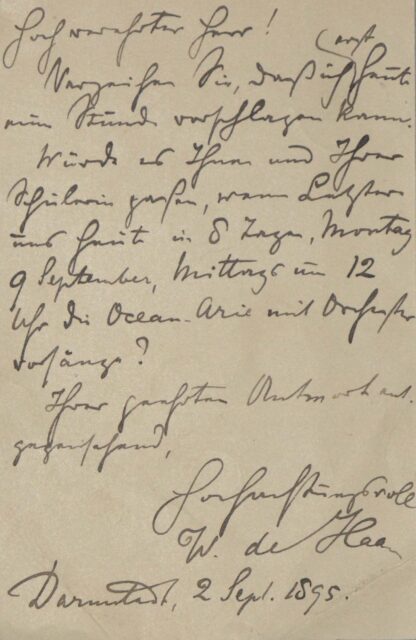 Hochverehrter Herr!
Verzeihen Sie, daß ich erst heute
eine Stunde vorschlagen kann.
Würde es Ihnen und Ihrer
Schülerin passen, wenn Letztere
uns heute in 8 Tagen, Montag
9 September, Mittags um 12
Uhr die Ocean-Arie mit Orchester
vorsänge?
Ihrer geehrten Antwort ent-
gegensehend,
Hochachtungsvoll
W. de Haan
Darmstadt, 2 Sept. 1895.